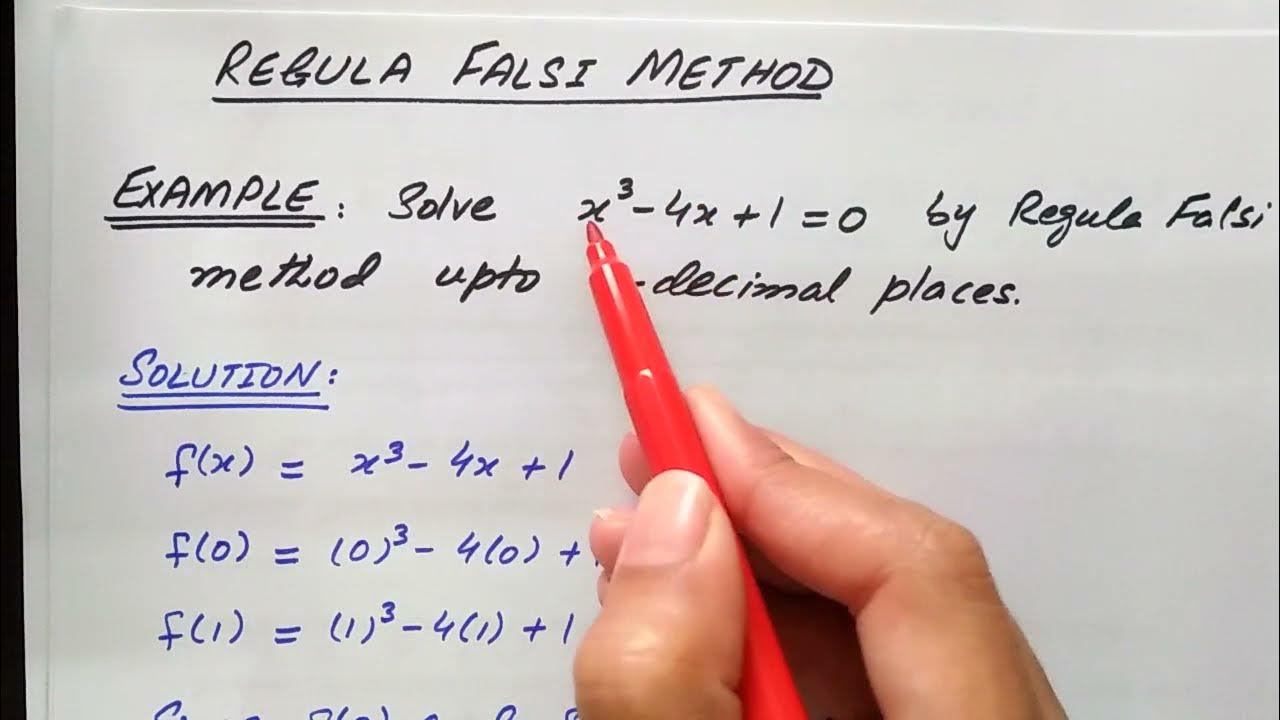 REGULA FALSI METHOD
EXAMPLE: Solve x³-4x+1=0 by Regula Falsi
method upto -decimal places.
SOLUTION:
f(x) = x³- 4x +1
f(0) = (0)³- 4(0) +
f(1) = (1)³-4(1) +1